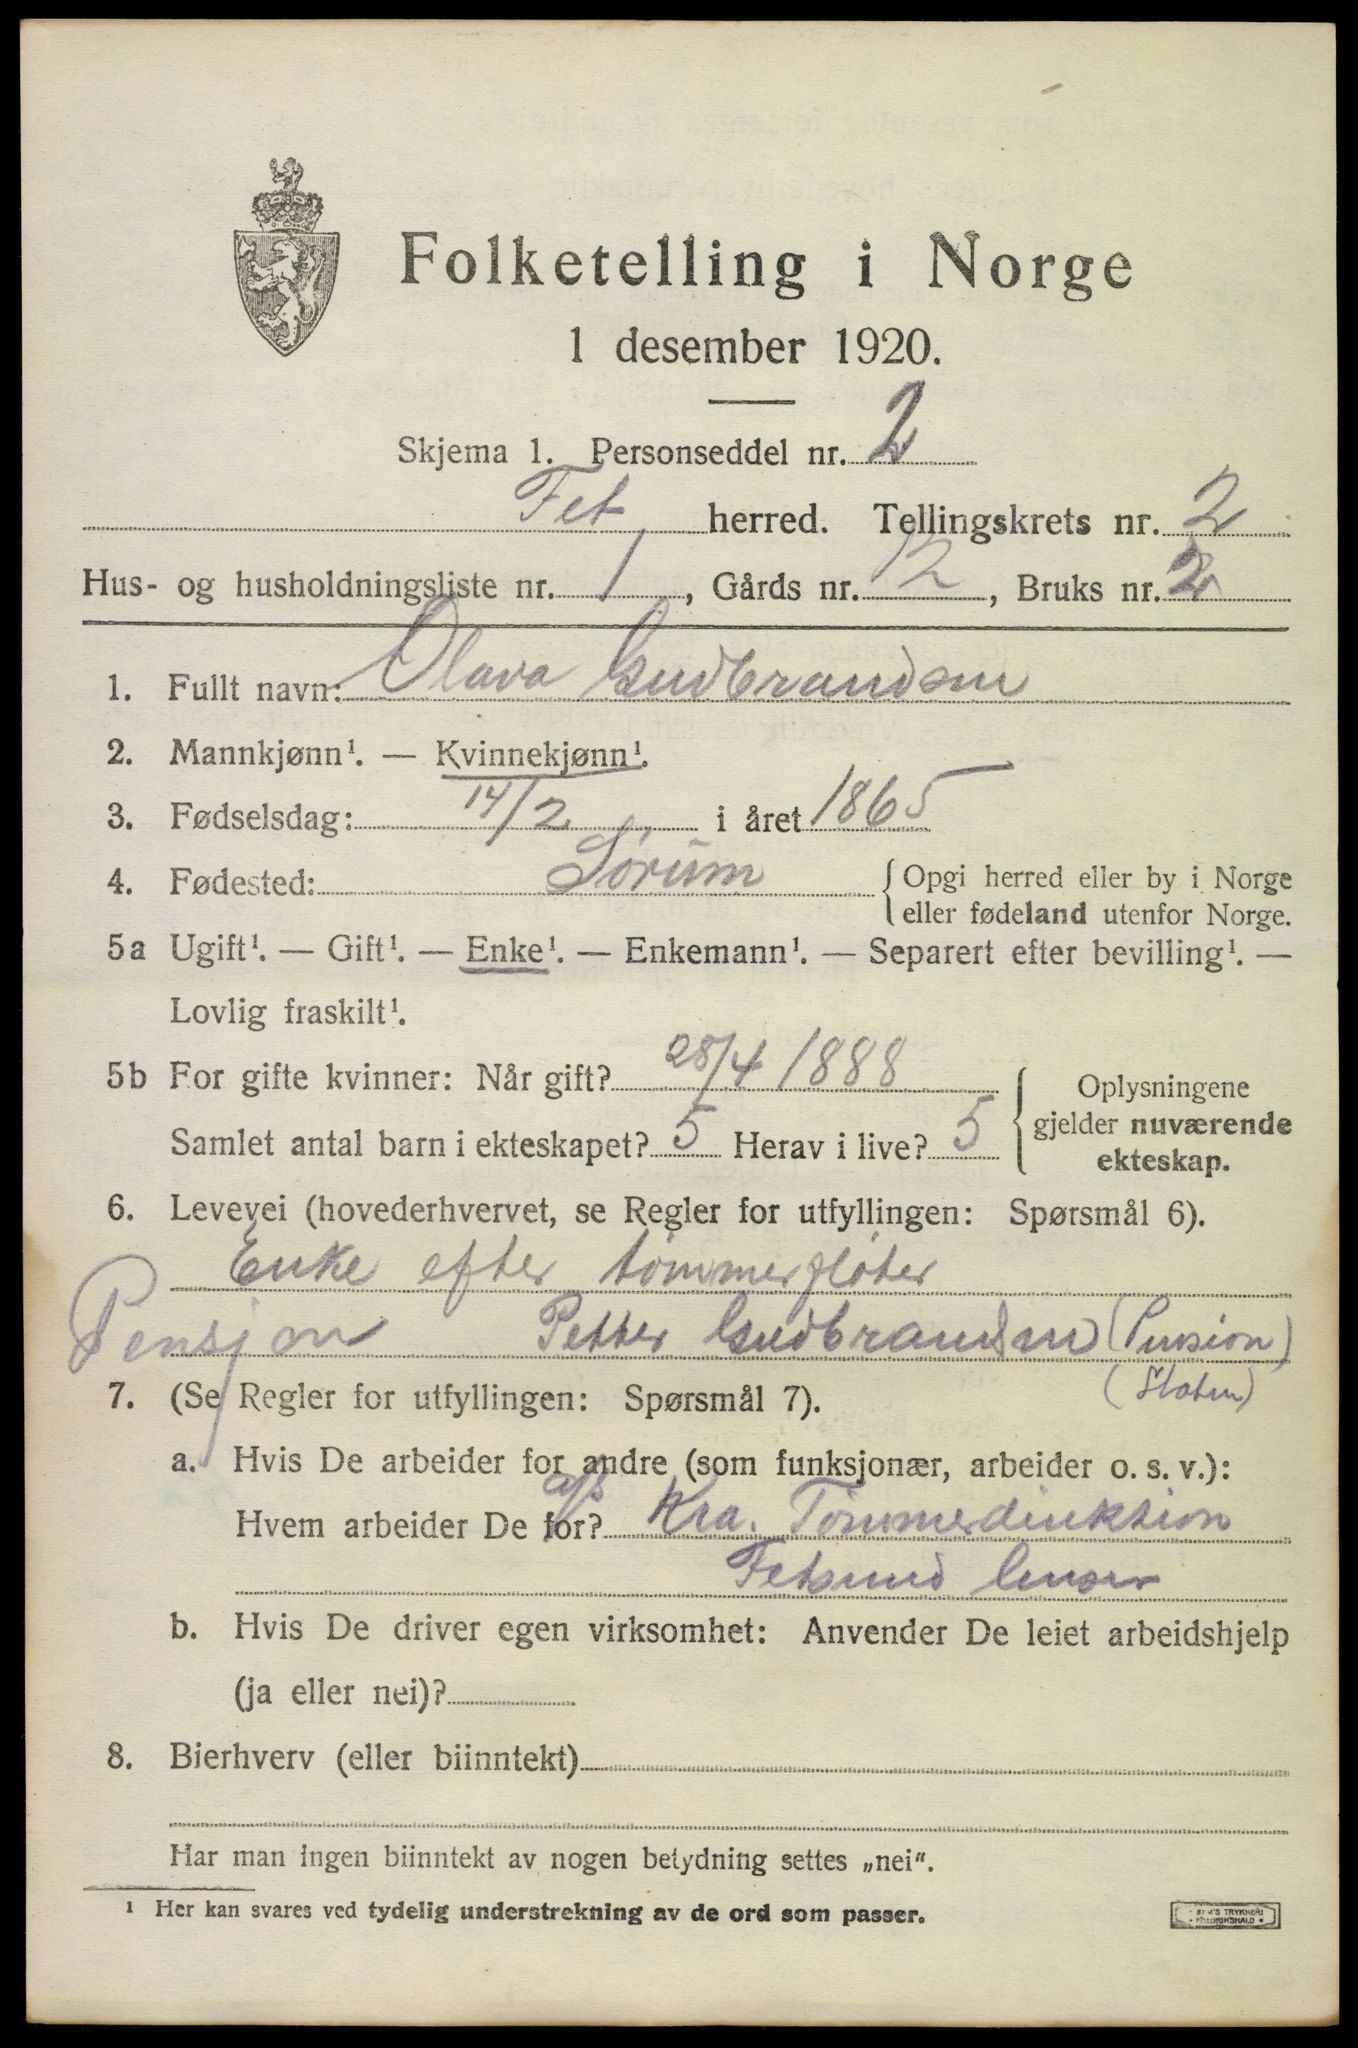 Folketelling i Norge
1 desember 1920.
Skjema 1. Personseddel nr. 2
Fet herred. Tellingskrets nr. 2
Hus- og husholdningsliste nr. 1, Gårds nr. 12, Bruks nr. 2
1. Fullt navn: Olava Gudbrandsen
2. Mannkjønn¹. — Kvinnekjønn¹.
3. Fødselsdag: 14/2 i året 1865
4. Fødested: Sørum { Opgi herred eller by i Norge
eller fødeland utenfor Norge.
5a Ugift¹. — Gift¹. — Enke¹. — Enkemann¹. — Separert efter bevilling¹. —
Lovlig fraskilt¹.
5b For gifte kvinner: Når gift? 28/4 1888
Samlet antal barn i ekteskapet? 5 Herav i live? 5
Oplysningene
gjelder nuværende
ekteskap.
6. Levevei (hovederhvervet, se Regler for utfyllingen: Spørsmål 6).
Enke efter tømmerfløter
Pensjon Petter Gudbrandsen (Pension)
(Staten)
7. (Se Regler for utfyllingen: Spørsmål 7).
a. Hvis De arbeider for andre (som funksjonær, arbeider o. s. v.):
Hvem arbeider De for? Kra. Tømmerdirektion
Fetsund lenser
b. Hvis De driver egen virksomhet: Anvender De leiet arbeidshjelp
(ja eller nei)?
8. Bierhverv (eller biinntekt)
Har man ingen biinntekt av nogen betydning settes „nei“.
¹ Her kan svares ved tydelig understrekning av de ord som passer.
TRYKKERI
FREDRIKSHALD